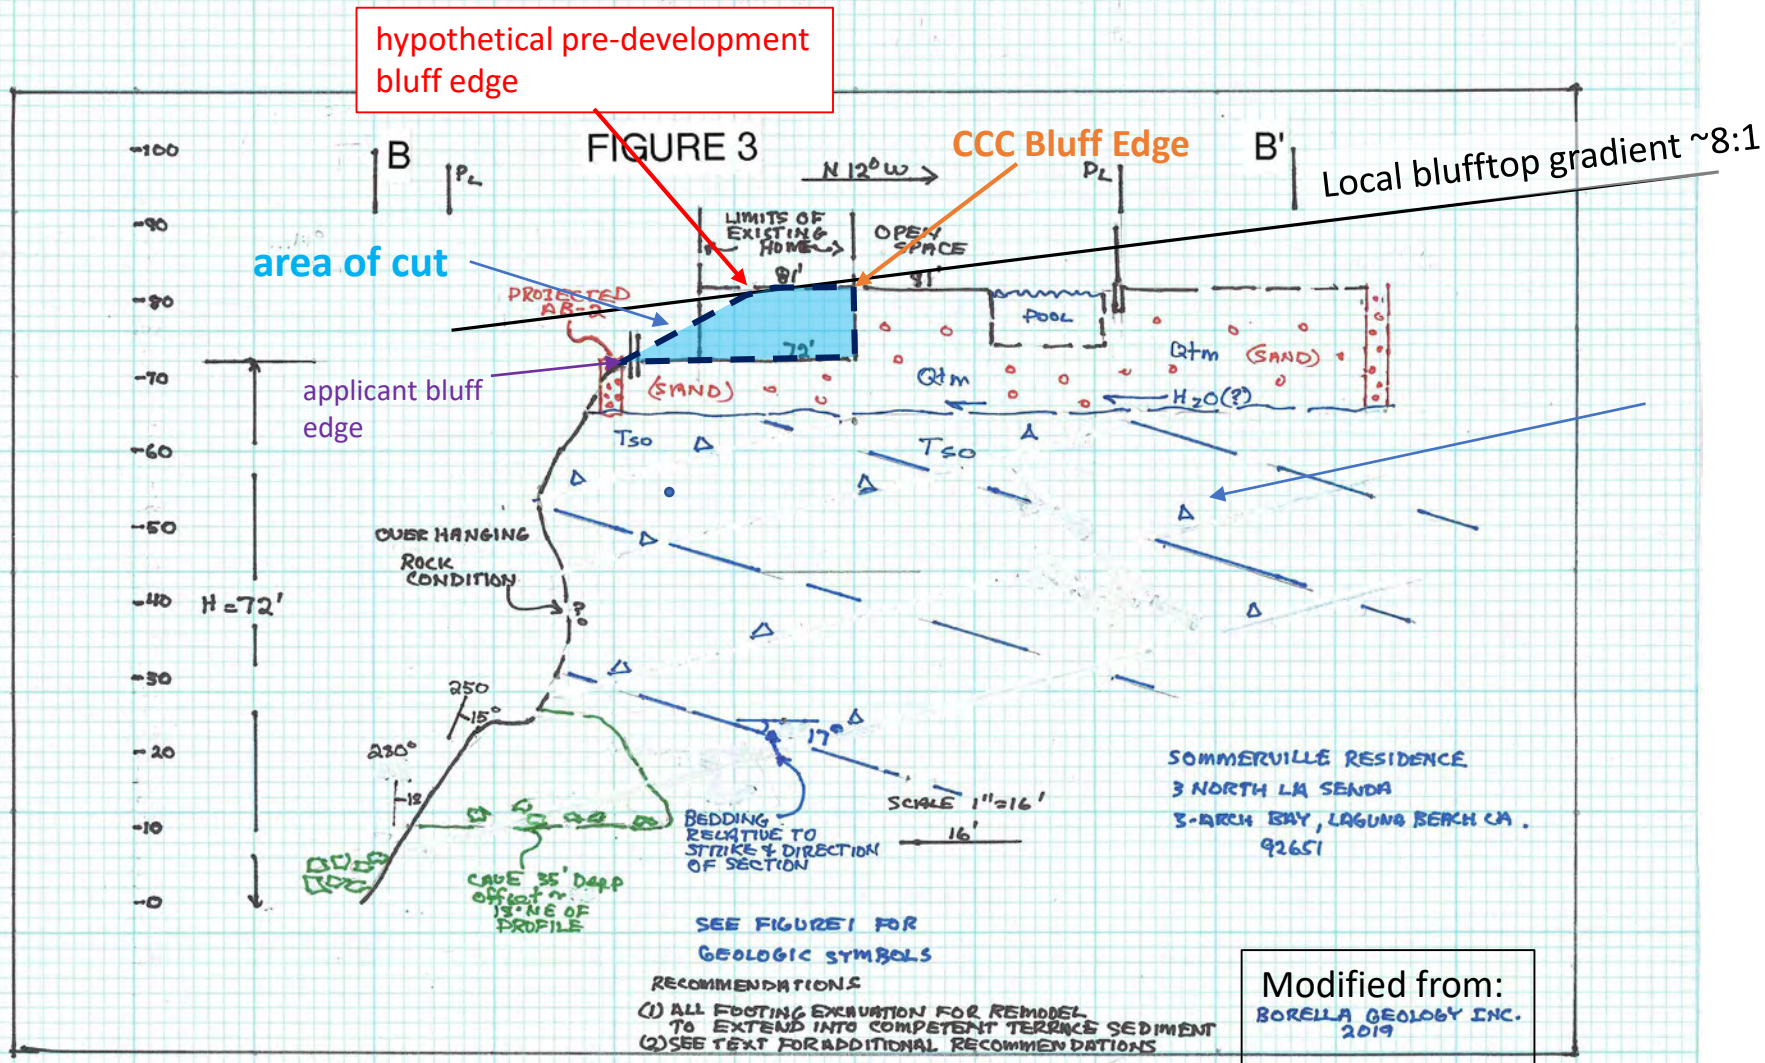 hypothetical pre-development
bluff edge
FIGURE 3
CCC Bluff Edge
B
B'
Local blufftop gradient ~8:1
PL
N 12° W
PL
-100
-90
-80
-70
-60
-50
-40
-30
-20
-10
-0
LIMITS OF
EXISTING
HOME
OPEN
SPACE
area of cut
81'
81'
PROJECTED
AB-2
POOL
72'
Qtm
(SAND)
applicant bluff
edge
(SAND)
Qtm
H2O(?)
Tso
Tso
OVER HANGING
ROCK
CONDITION
?
H = 72'
250
15°
230°
18
17°
SCALE 1"=16'
16'
BEDDING
RELATIVE TO
STRIKE & DIRECTION
OF SECTION
CAVE 35' Deep
offset ~
18' NE OF
PROFILE
SOMMERVILLE RESIDENCE
3 NORTH LA SENDA
3-ARCH BAY, LAGUNA BEACH CA.
92651
SEE FIGURE 1 FOR
GEOLOGIC SYMBOLS
RECOMMENDATIONS
(1) ALL FOOTING EXCAVATION FOR REMODEL
TO EXTEND INTO COMPETENT TERRACE SEDIMENT
(2) SEE TEXT FOR ADDITIONAL RECOMMENDATIONS
Modified from:
BORELLA GEOLOGY INC.
2019